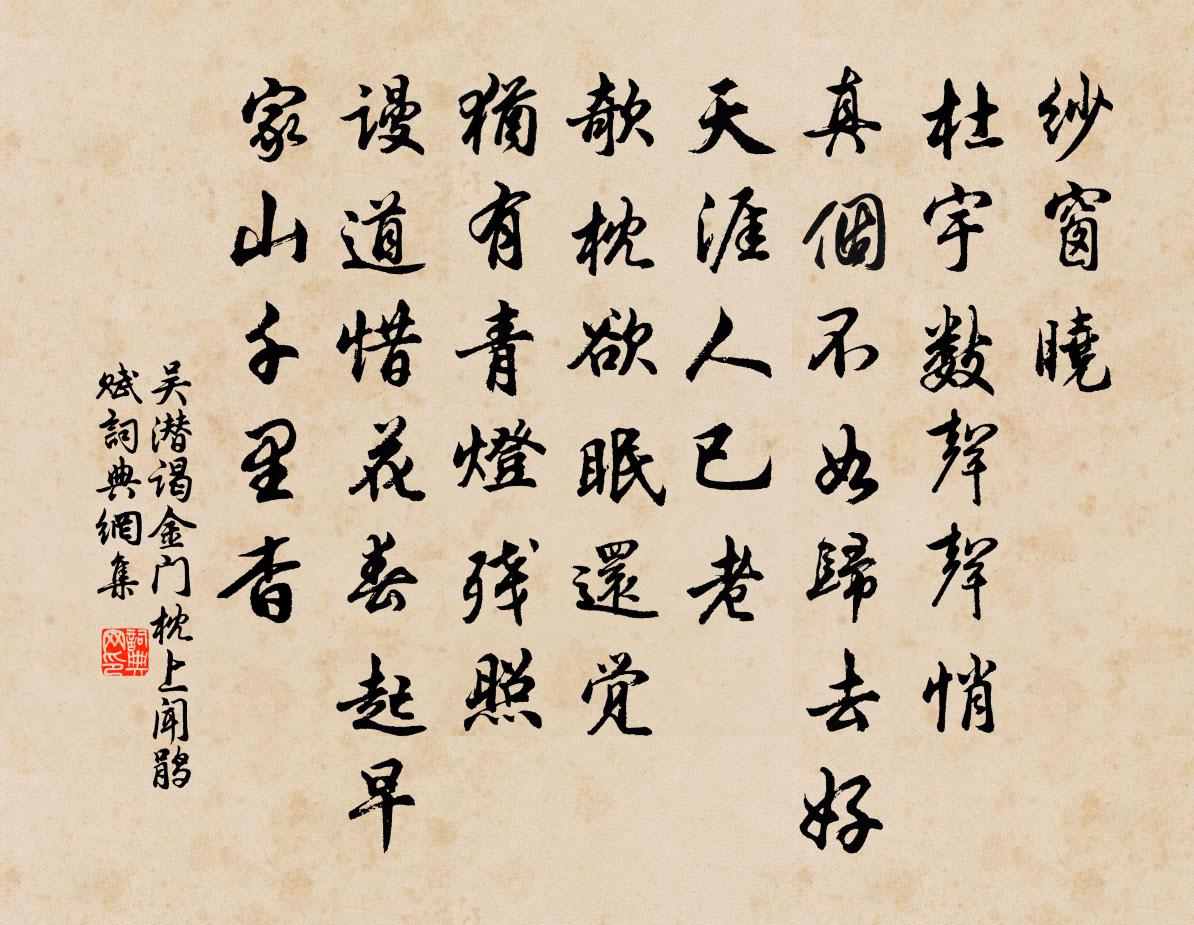 紗窗曉
杜宇數聲聲悄
真個不如歸去好
天涯人已老
欹枕欲眠還覺
猶有青燈殘照
謾道惜花春起早
家山千里杳
吴潜谒金门枕上闻鹃
赋詞典網集
詞典网印